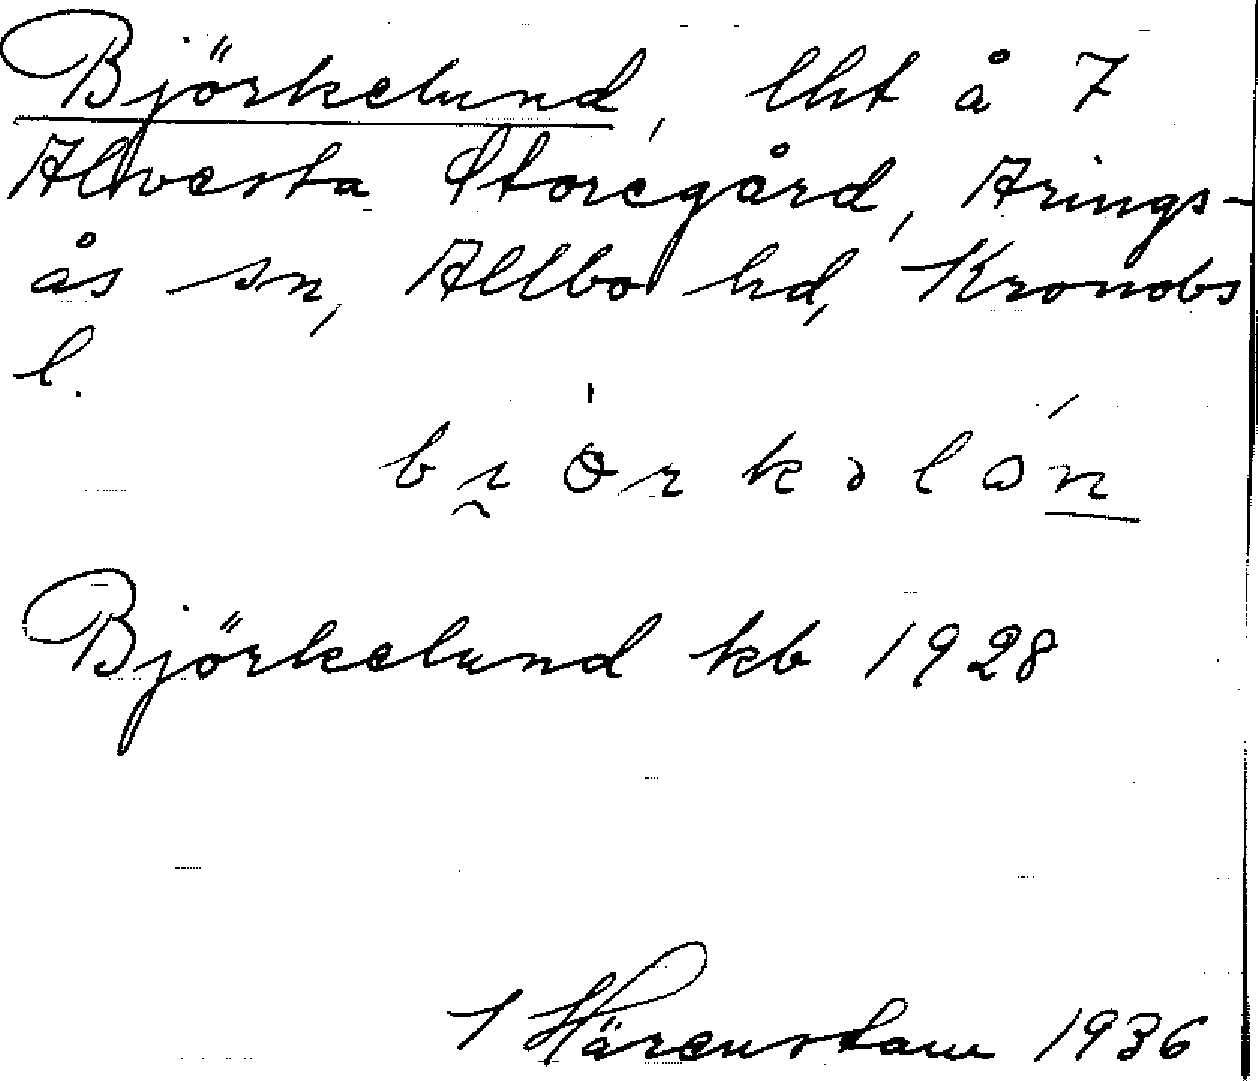 Björkelund, lht å 7
Alvesta Storegård, Arings-
ås sn, Allbo hd, Kronobs
l.
bi̯ö́rkəlón
Björkelund kb 1928
Härenstam 1936